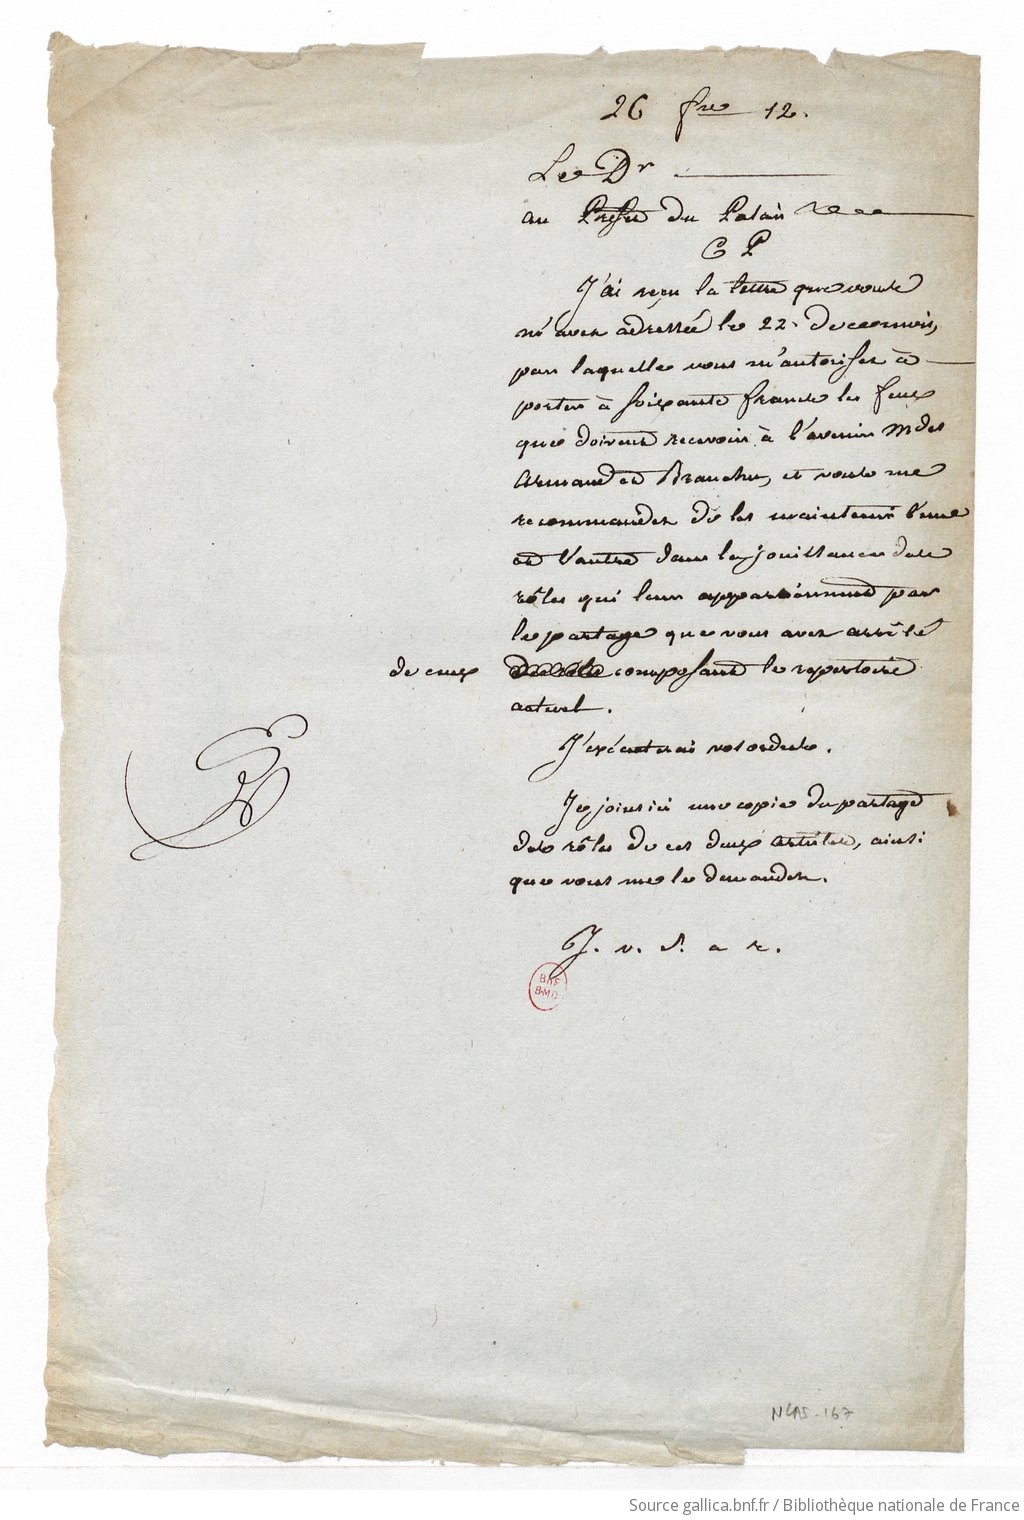 26 fre 12.
Le Dr
au Prefet du Palais
C P
J'ai reçu la lettre que vous
m'avez adressée le 22. de ce mois,
par laquelle vous m'autorisez à
porter à soixante francs les feux
que doivent recevoir à l'avenir Mdes
Armand et Branchu, et vous me
recommandez de les maintenir l'une
et l'autre dans la jouissance des
rôles qui leur appartiennent par
le partage que vous avez arrêté
de ceux composant le repertoire
actuel.
J'exécuterai vos ordres.
Je joins ici une copie du partage
des rôles de ces deux artistes, ainsi
que vous me le demandez.
J. v. S. a r.
BnF
B-MO
NLAS-167
Source gallica.bnf.fr / Bibliothèque nationale de France